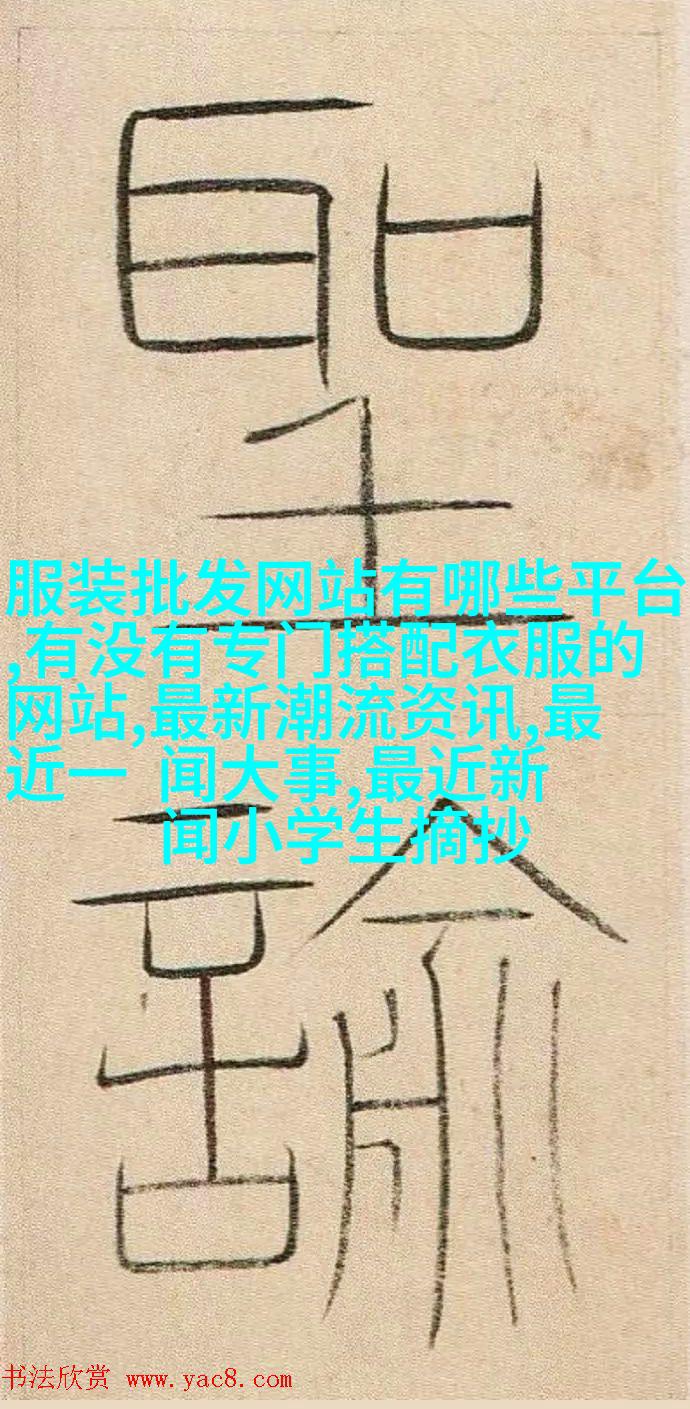 聖
諭
服装批发网站有哪些平台
,有没有专门搭配衣服的
网站,最新潮流资讯,最
近一 闻大事,最近新
闻小学生摘抄
书法欣赏 www.yac8.com